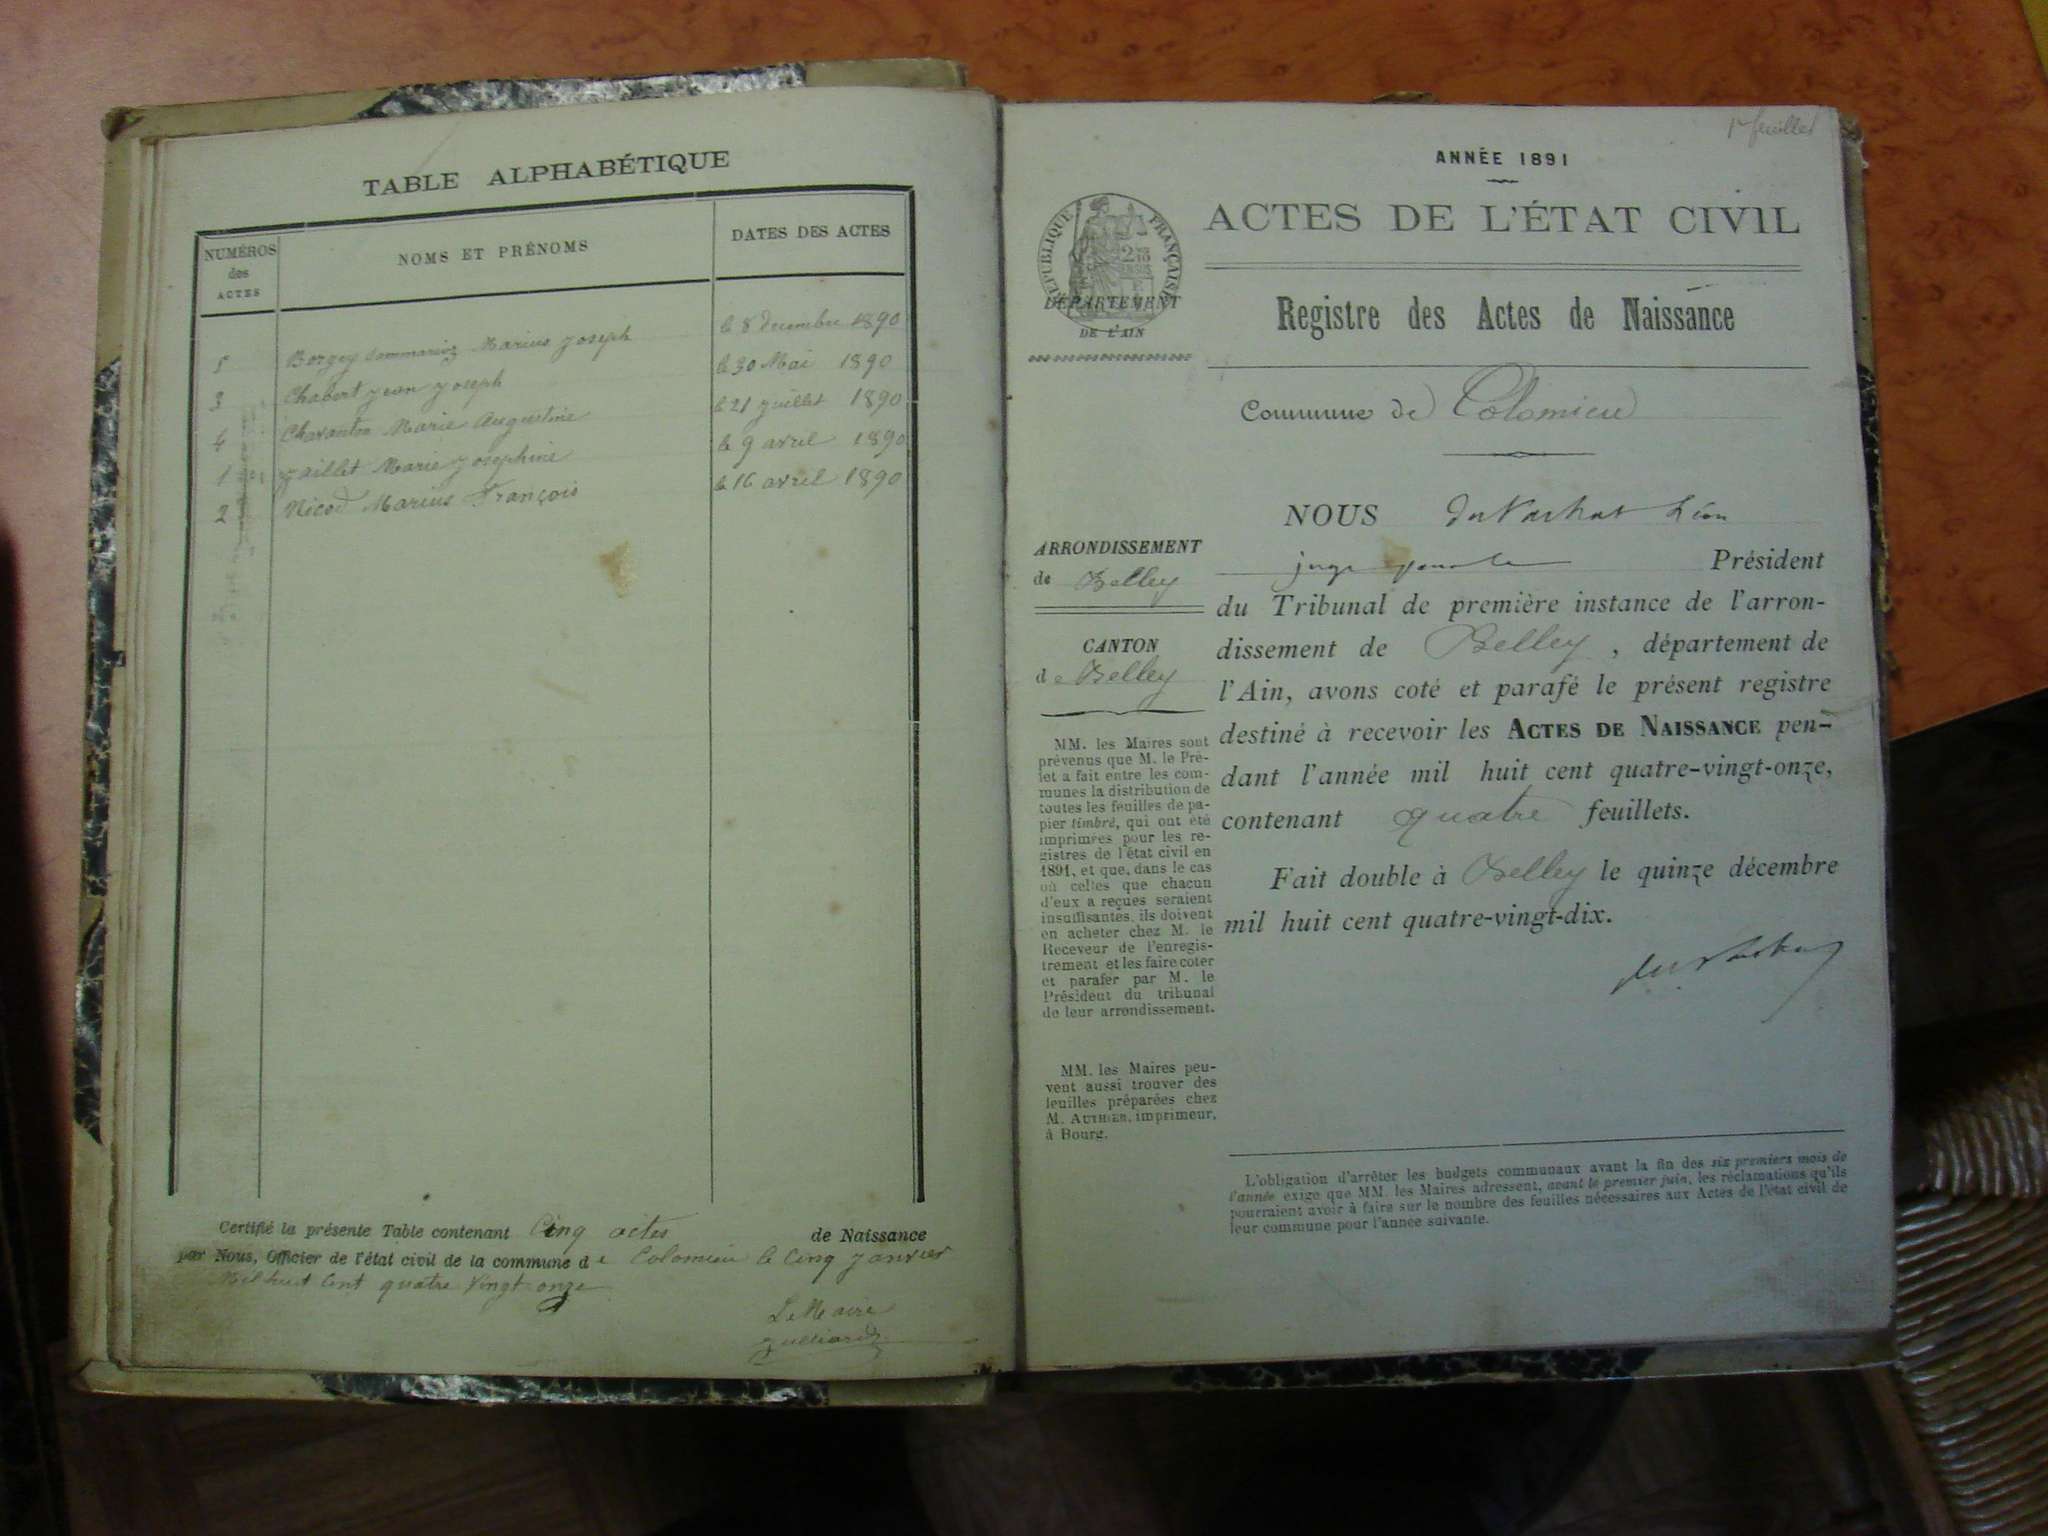 TABLE ALPHABÉTIQUE
NUMÉROS
des
ACTES
NOMS ET PRÉNOMS
DATES DES ACTES
5 Borgey Marius Joseph le 8 décembre 1890
3 Chabert Jean Joseph le 30 Mai 1890
4 Chavanton Marie Augustine le 21 juillet 1890
1 Jaillet Marie Josephine le 9 avril 1890
2 Nicod Marius François le 16 avril 1890
Certifié la présente Table contenant Cinq actes de Naissance
par Nous, Officier de l'état civil de la commune de Colomieu le Cinq Janvier
Mil huit Cent quatre Vingt onze
Le Maire
1er feuillet
ANNÉE 1891
ACTES DE L'ÉTAT CIVIL
RÉPUBLIQUE FRANÇAISE
DÉPARTEMENT
DE L'AIN
Registre des Actes de Naissance
Commune de Colomieu
ARRONDISSEMENT
de Belley
CANTON
de Belley
MM. les Maires sont
prévenus que M. le Pré-
fet a fait entre les com-
munes la distribution de
toutes les feuilles de pa-
pier timbré, qui ont été
imprimées pour les re-
gistres de l'état civil en
1891, et que, dans le cas
où celles que chacun
d'eux a reçues seraient
insuffisantes, ils doivent
en acheter chez M. le
Receveur de l'enregis-
trement et les faire coter
et parafer par M. le
Président du tribunal
de leur arrondissement.
MM. les Maires peu-
vent aussi trouver des
feuilles préparées chez
M. AUTHIER, imprimeur,
à Bourg.
NOUS Léon
juge Président
du Tribunal de première instance de l'arron-
dissement de Belley, département de
l'Ain, avons coté et parafé le présent registre
destiné à recevoir les ACTES DE NAISSANCE pen-
dant l'année mil huit cent quatre-vingt-onze,
contenant quatre feuillets.
Fait double à Belley le quinze décembre
mil huit cent quatre-vingt-dix.
L'obligation d'arrêter les budgets communaux avant la fin des six premiers mois de
l'année exige que MM. les Maires adressent, avant le premier juin, les réclamations qu'ils
pourraient avoir à faire sur le nombre des feuilles nécessaires aux Actes de l'état civil de
leur commune pour l'année suivante.